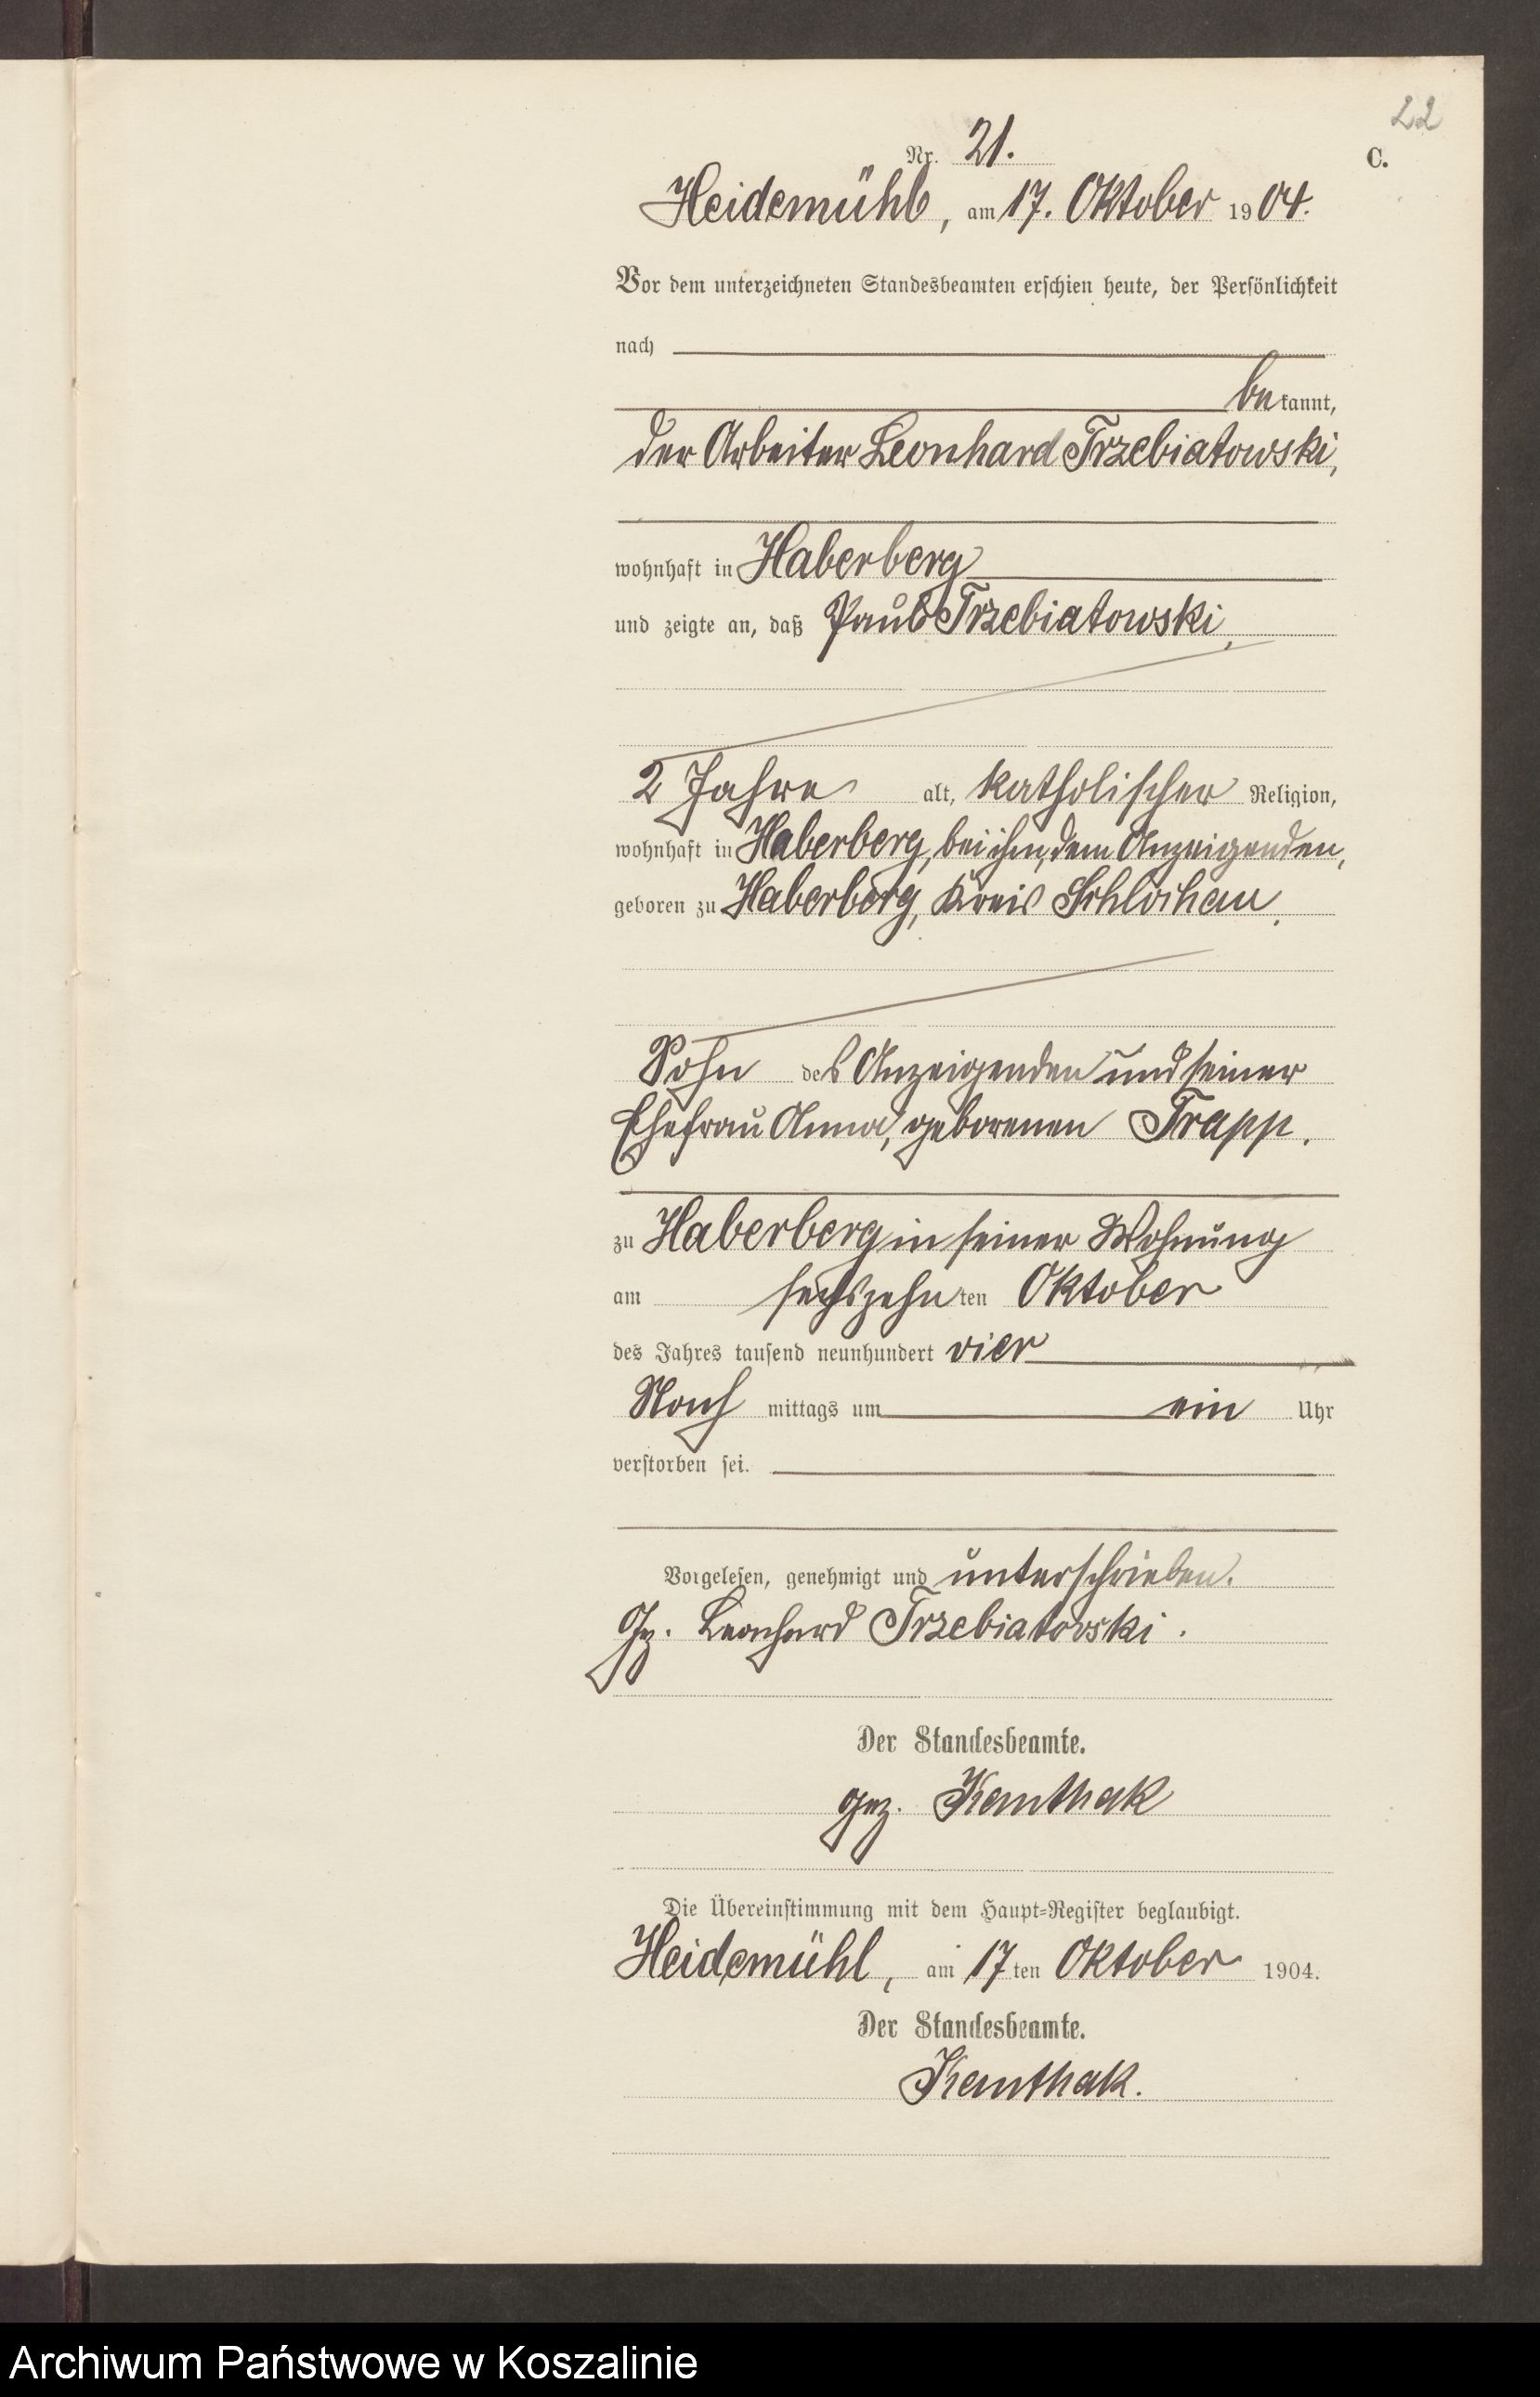 22
Nr. 21.
C.
Heidemühl, am 17. Oktober 1904.
Vor dem unterzeichneten Standesbeamten erschien heute, der Persönlichkeit
nach
bekannt,
der Arbeiter Leonhard Trzebiatowski,
wohnhaft in Haberberg
und zeigte an, daß Paul Trzebiatowski,
2 Jahre alt, katholischer Religion,
wohnhaft in Haberberg, bei ihm, dem Anzeigenden,
geboren zu Haberberg, Kreis Schlochau,
Sohn des Anzeigenden und seiner
Ehefrau Anna, geborenen Trapp.
zu Haberberg in seiner Wohnung
am sechszehnten Oktober
des Jahres tausend neunhundert vier
Nachmittags um ein Uhr
verstorben sei.
Vorgelesen, genehmigt und unterschrieben.
Gz. Leonhard Trzebiatovski.
Der Standesbeamte.
gez. Kauthak
Die Übereinstimmung mit dem Haupt-Register beglaubigt.
Heidemühl, am 17ten Oktober 1904.
Der Standesbeamte.
Kauthak.
Archiwum Państwowe w Koszalinie